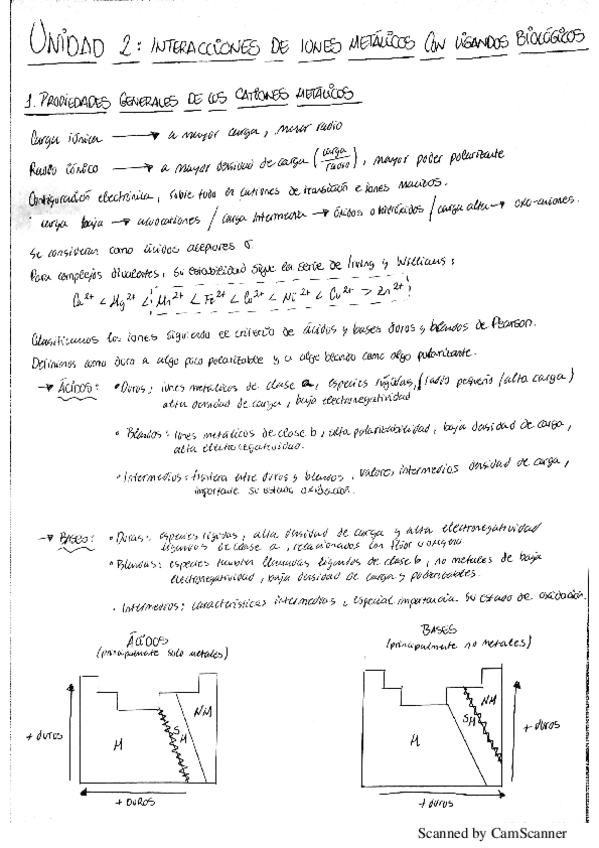 UNIDAD 2: INTERACCIONES DE IONES METÁLICOS CON LIGANDOS BIOLÓGICOS
1. PROPIEDADES GENERALES DE LOS CATIONES METÁLICOS
Carga iónica → a mayor carga, menor radio
Radio iónico → a mayor densidad de carga (carga/radio), mayor poder polarizante
Configuración electrónica, sobre todo en cationes de transición e iones macizos.
carga baja → acuocationes / carga intermedia → óxidos o hidróxidos / carga alta → oxo-aniones.
Se consideran como ácidos aceptores σ.
Para complejos divalentes, su estabilidad sigue la serie de Irving y Williams:
Ca²⁺ < Mg²⁺ < Mn²⁺ < Fe²⁺ < Co²⁺ < Ni²⁺ < Cu²⁺ > Zn²⁺
Clasificamos los iones siguiendo el criterio de ácidos y bases duros y blandos de Pearson.
Definimos como duro a algo poco polarizable y a algo blando como algo polarizante.
→ ÁCIDOS: • Duros: iones metálicos de clase a, especies rígidas, (radio pequeño / alta carga)
alta densidad de carga, baja electronegatividad
• Blandos: iones metálicos de clase b, alta polarizabilidad, baja densidad de carga,
alta electronegatividad.
• Intermedios: frontera entre duros y blandos, valores intermedios densidad de carga,
importante su estado oxidación.
→ BASES: • Duras: especies rígidas, alta densidad de carga y alta electronegatividad
ligandos de clase a, relacionados con flúor u oxígeno.
• Blandas: especies también llamadas ligandos de clase b, no metales de baja
electronegatividad, baja densidad de carga y polarizables.
• Intermedios: características intermedias, especial importancia su estado de oxidación.
ÁCIDOS
(principalmente solo metales)
BASES
(principalmente no metales)
+ duros
M
SM
NM
+ duros
M
SM
NM
+ duros
+ duros
Scanned by CamScanner